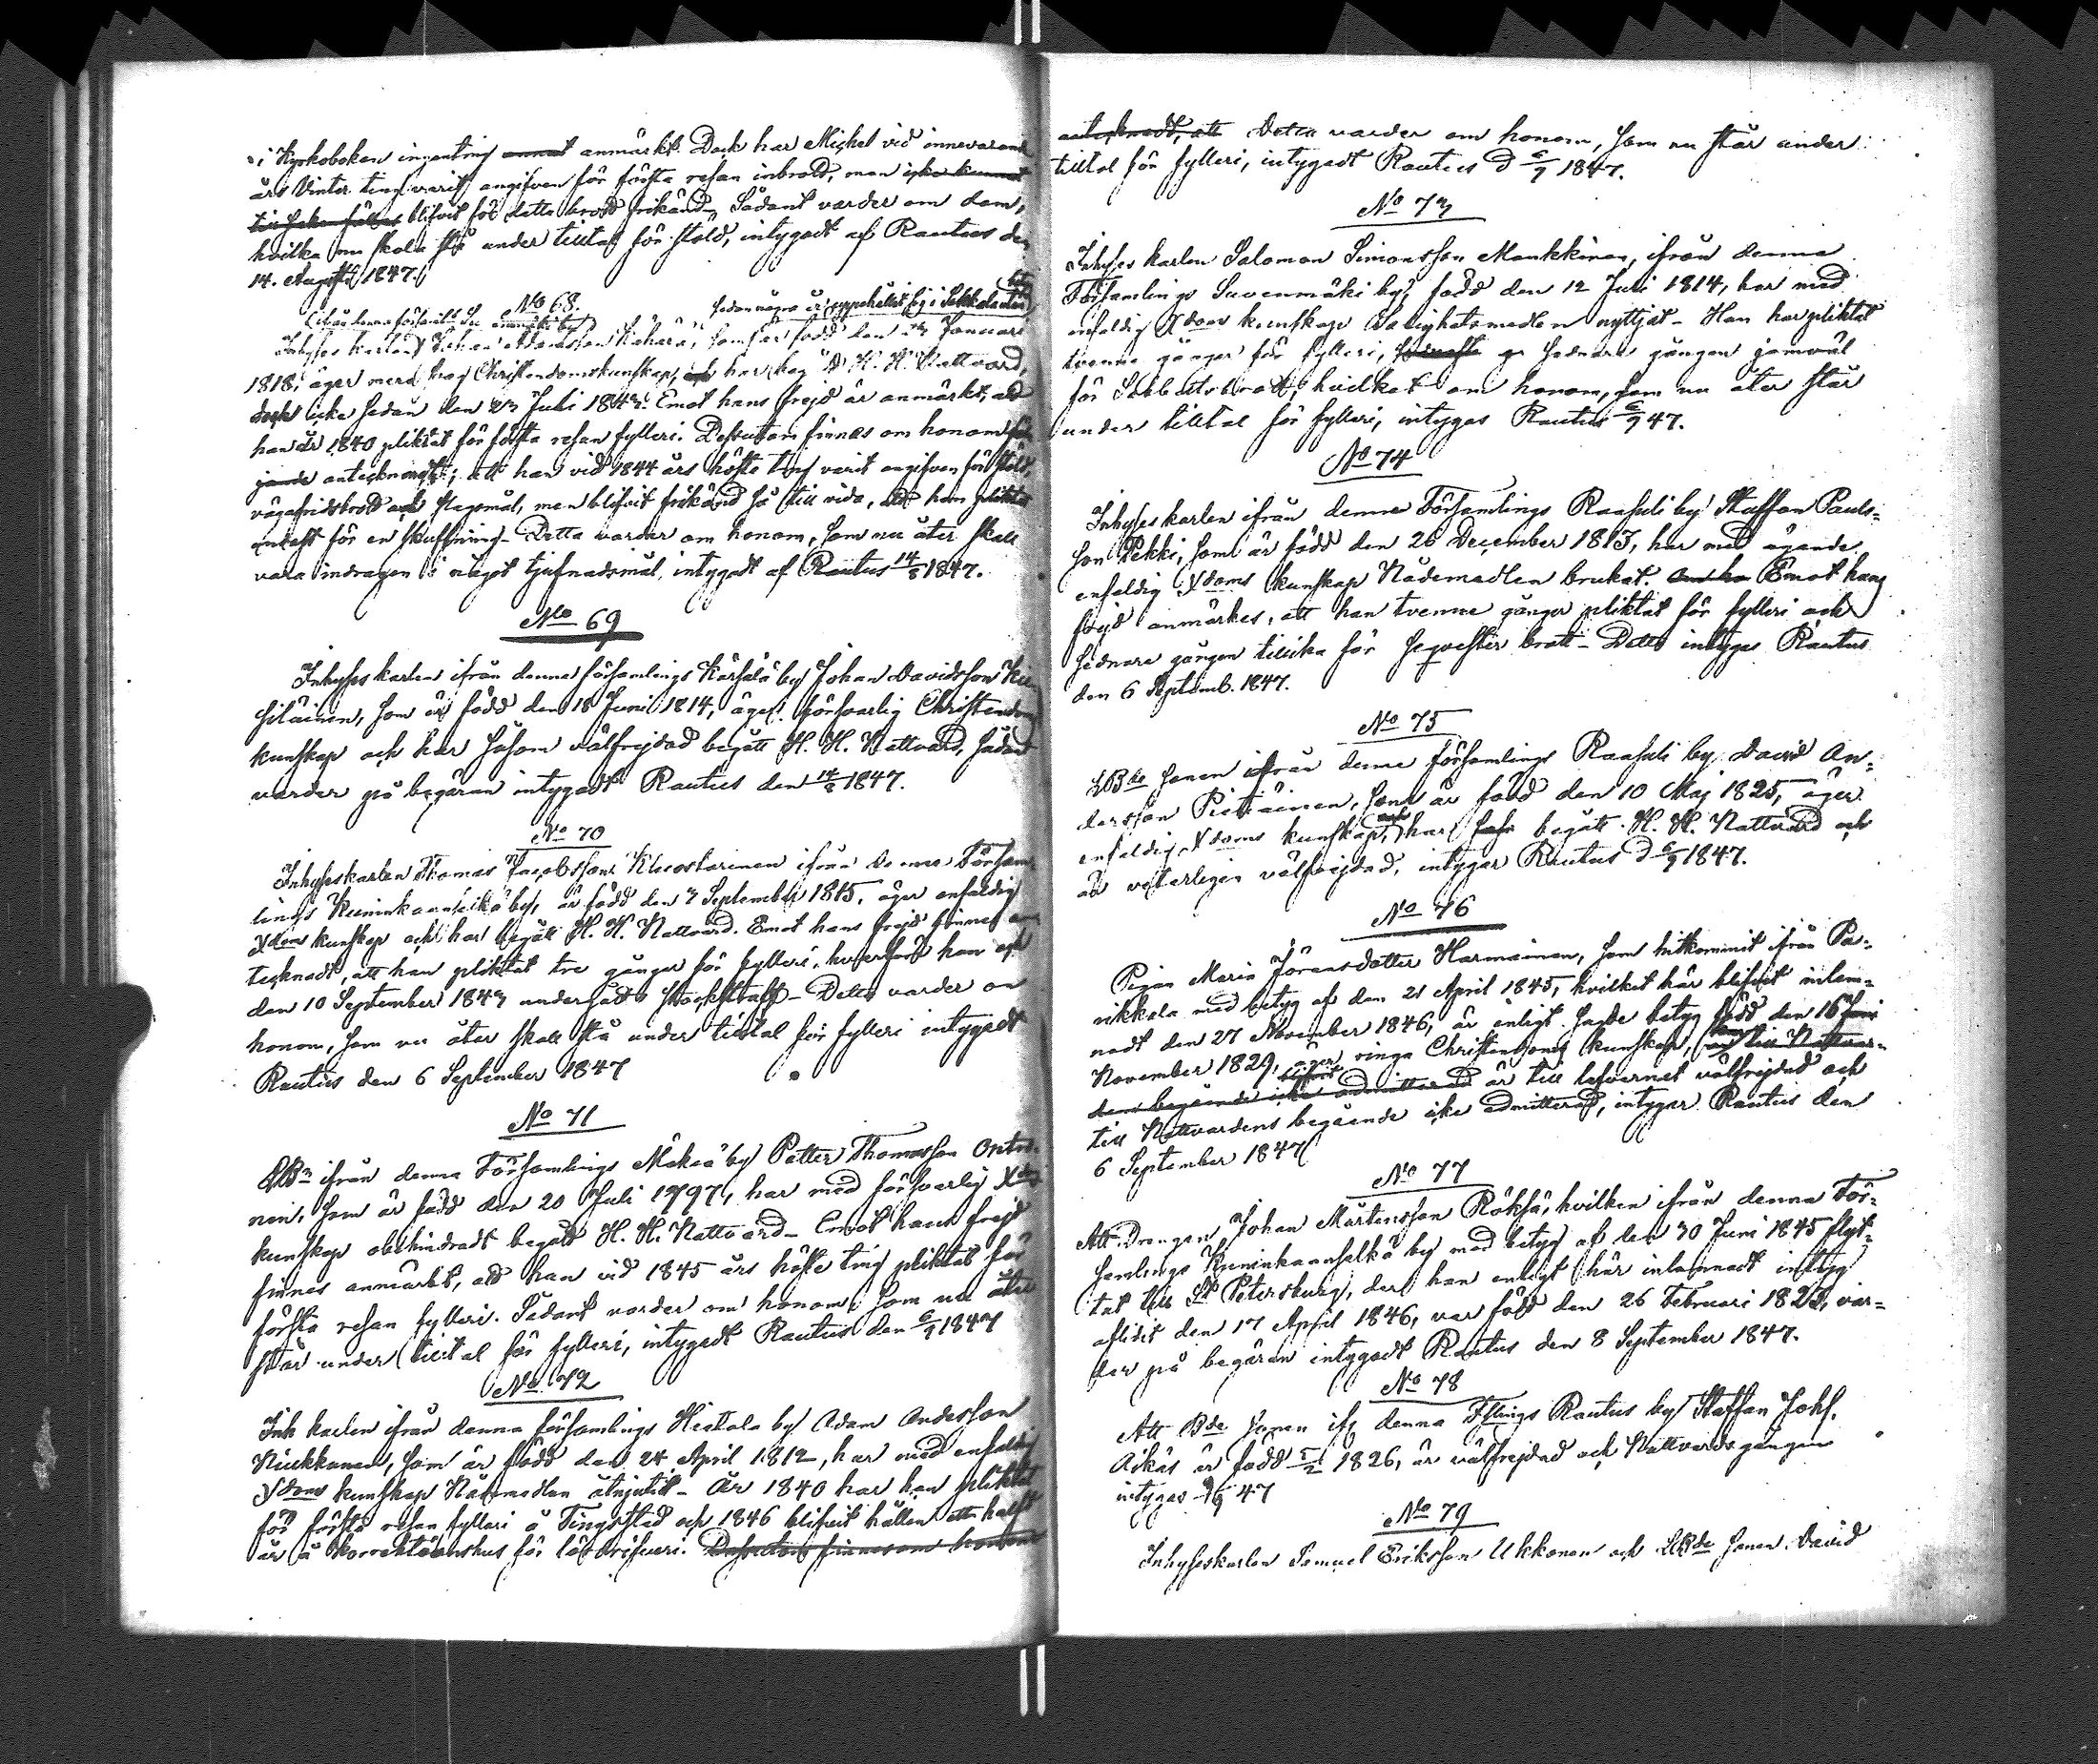 i Kyrkoboken ingenting annat anmärkt. Dock har Michel vid innevarande
års Vinter ting varit angifven för första resan inbrott, men icke kunnat
till saken fällas blifvit för detta brott frikänd. Sådant varder om dem,
hvilka nu skola stå under tilltal för stöld, intygadt af Rautus den
14. Augusti 1847.
No 68.
sedan några år uppehållit sig i Sakkola
Inhyses karlen Johan Adamsson Kähärä, som är född den 23 Januari
1818, äger mera svag Christendomskunskap, och har beg. d. H. H. Nattvard,
dock icke sedan den 23 Juli 1843. Emot hans frejd är anmärkt, att
han år 1840 pliktat för första resan fylleri. Dessutom finnes om honom föl-
jande antecknadt; att han vid 1844 års höste ting varit angifven för stöld,
vägafridsbrott och slagsmål, men blifvit frikänd så till vida, att han pliktat
endast för en skuffning. Detta varder om honom, som nu åter skall
vara indragen i något tjufnadsmål, intygadt af Rautus 14/8 1847.
No 69
Inhyses karlen ifrån denna församlings Kärsälä by Johan Davidsson Ku-
siläinen, som är född den 18 Juni 1814, äger försvarlig Christendoms
kunskap och har såsom välfrejdad begått H. H. Nattvard, sådant
varder på begäran intygadt Rautus den 14/8 1847.
No 70
Inhyseskarlen Thomas Jacobsson Kluostarinen ifrån denna Försam-
lings Kuninkaanselkä by, är född den 3 September 1815, äger enfaldig
Xdoms kunskap och har begått H. H. Nattvard. Emot hans frejd finnes an-
tecknadt, att han pliktat tre gånger för fylleri, hvarföre han ock
den 10 September 1843 undergått stockstraff. Detta varder om
honom, som nu åter skall stå under tilltal för fylleri intygadt
Rautus den 6 September 1847
No 71
LBn ifrån denna Församlings Mäkrä by Petter Thomasson Ontro-
nen, som är född den 20 Juli 1797, har med försvarlig Xdoms
kunskap obehindradt begått H. H. Nattvard. Emot hans frejd
finnes anmärkt, att han vid 1845 års höste ting pliktat för
första resan fylleri. Sådant varder om honom, som nu åter
står under tilltal för fylleri, intygadt Rautus den 6/9 1847
No 72
Inh karlen ifrån denna församlings Hietala by Adam Andersson
Niukkanen, som är född den 24 April 1812, har med enfaldig
Xdoms kunskap Nådemedlen åtnjutit. År 1840 har han pliktat
för första resan fylleri å Tingsstad och 1846 blifvit hållen ett halft
år å Korrektionshus för lösdrifveri. Dessutom finnes om honom
antecknadt, att Detta varder om honom, som nu står under
tilltal för fylleri, intygadt Rautus d 6/9 1847.
No 73
Inhyses karlen Salomon Simonsson Monkkinen, ifrån denna
Församlings Suvenmäki by, född den 12 Juli 1814, har med
enfaldig Xdoms kunskap Salighetsmedlen nyttjat. Han har pliktat
tvenne gånger för fylleri, senare gången jemväl
för Sabbatsbrott; hvilket om honom, som nu åter står
under tilltal för fylleri, intygas Rautus 6/9 47.
No 74
Inhyses karlen ifrån denna Församlings Raasuli by Staffan Pauls-
son Pekki, som är född den 26 December 1813, har med ägande
enfaldig Xdoms kunskap Nådemedlen brukat. Emot hans
frejd anmärkes, att han tvenne gånger pliktat för fylleri och
sednare gången tillika för seqvester brott. Detta intygas Rautus
den 6 Septemb. 1847.
No 75
LBde sonen ifrån denna församlings Raasuli by David An-
dersson Pietiäinen, som är född den 10 Maj 1825, äger
enfaldig Xdoms kunskap, har begått H. H. Nattvard och
är veterligen välfrejdad, intygar Rautus d 6/9 1847.
No 76
Pigan Maria Jöransdotter Harmainen, som hitkommit ifrån Pa-
rikkala med betyg af den 21 April 1845, hvilket här blifvit inlem-
nadt den 27 November 1846, är enligt sagde betyg född den 16
November 1829, äger ringa Christendoms kunskap, till Nattvar-
dens begående icke admitterad är till lefvernet välfrejdad och
till Nattvardens begående icke admitterad, intygar Rautus den
6 September 1847
No 77
Att Drengen Johan Mårtensson Röksä, hvilken ifrån denna För-
samlings Kuninkaanselkä by med betyg af den 30 Juni 1845 flyt-
tat till St Petersburg, der han enligt här inlemnadt intyg
aflidit den 17 April 1846, var född den 26 Februari 1823, var-
der på begäran intygadt Rautus den 8 September 1847.
No 78
Att Bde sonen ifr denna Fslings Rautus by Staffan Johs.
Äikäs är född 5/2 1826, är välfrejdad och Nattvardsgången
intygas 9/9 47
No 79
Inhyseskarlen Samuel Eriksson Ukkonen och LBde sonen David